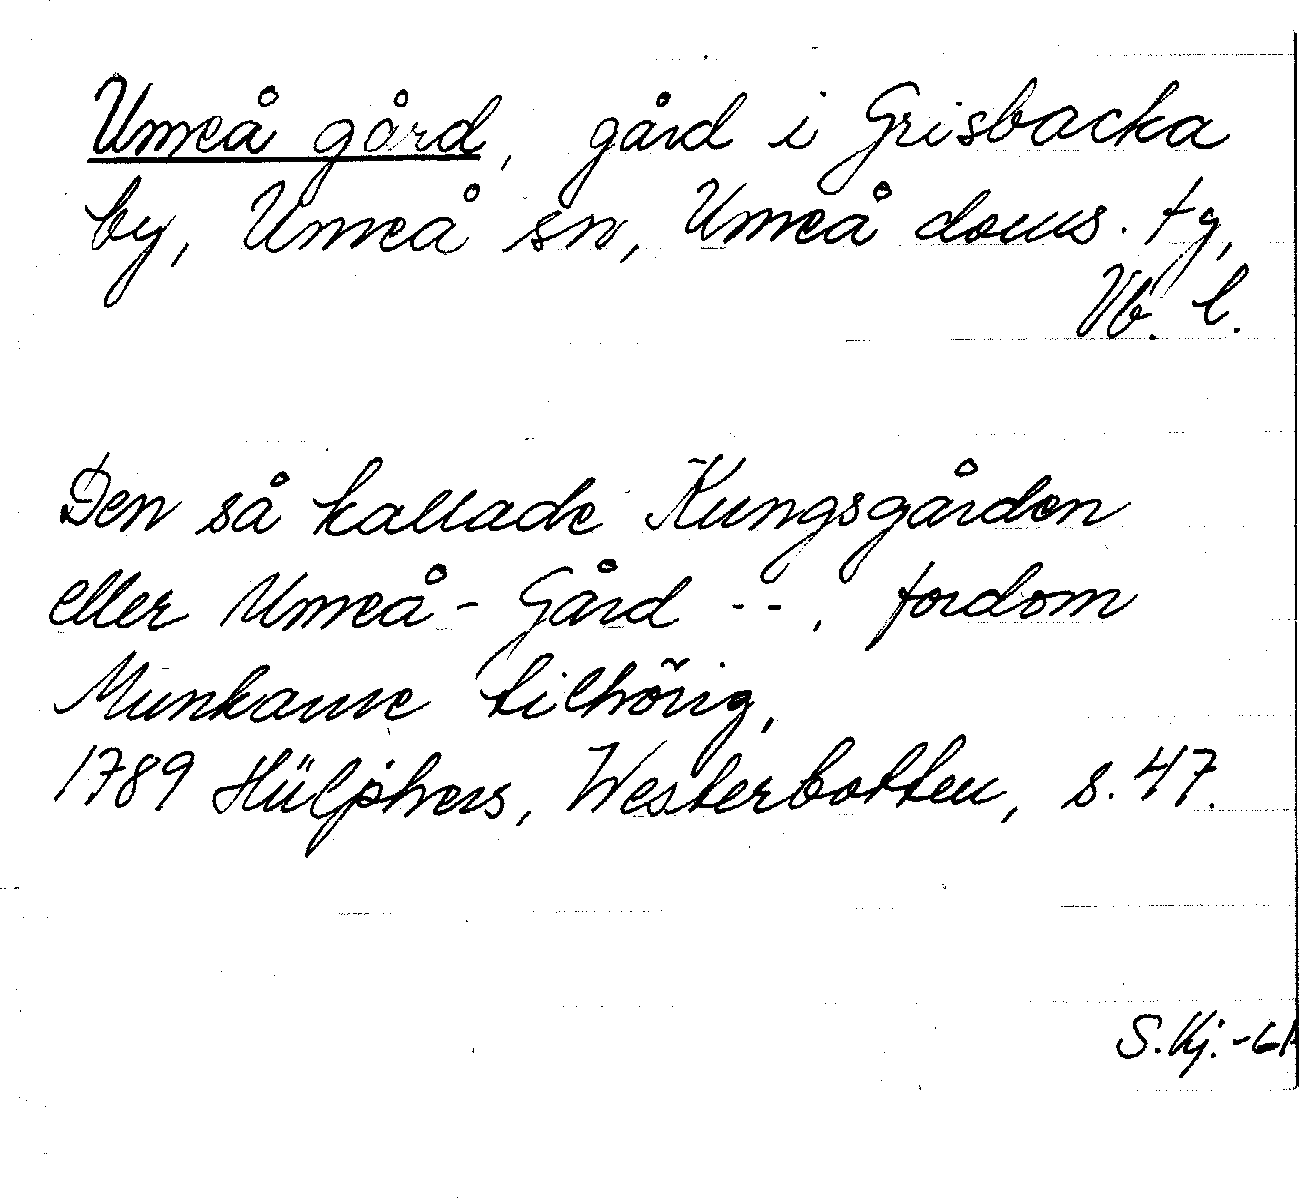 Umeå gård, gård i Grisbacka
by, Umeå sn, Umeå doms. tg,
Vb. l.
Den så kallade Kungsgården
eller Umeå-Gård --, fordom
Munkarne tilhörig,
1789 Hülphers, Westerbotten, s. 47.
S.Kj.-61